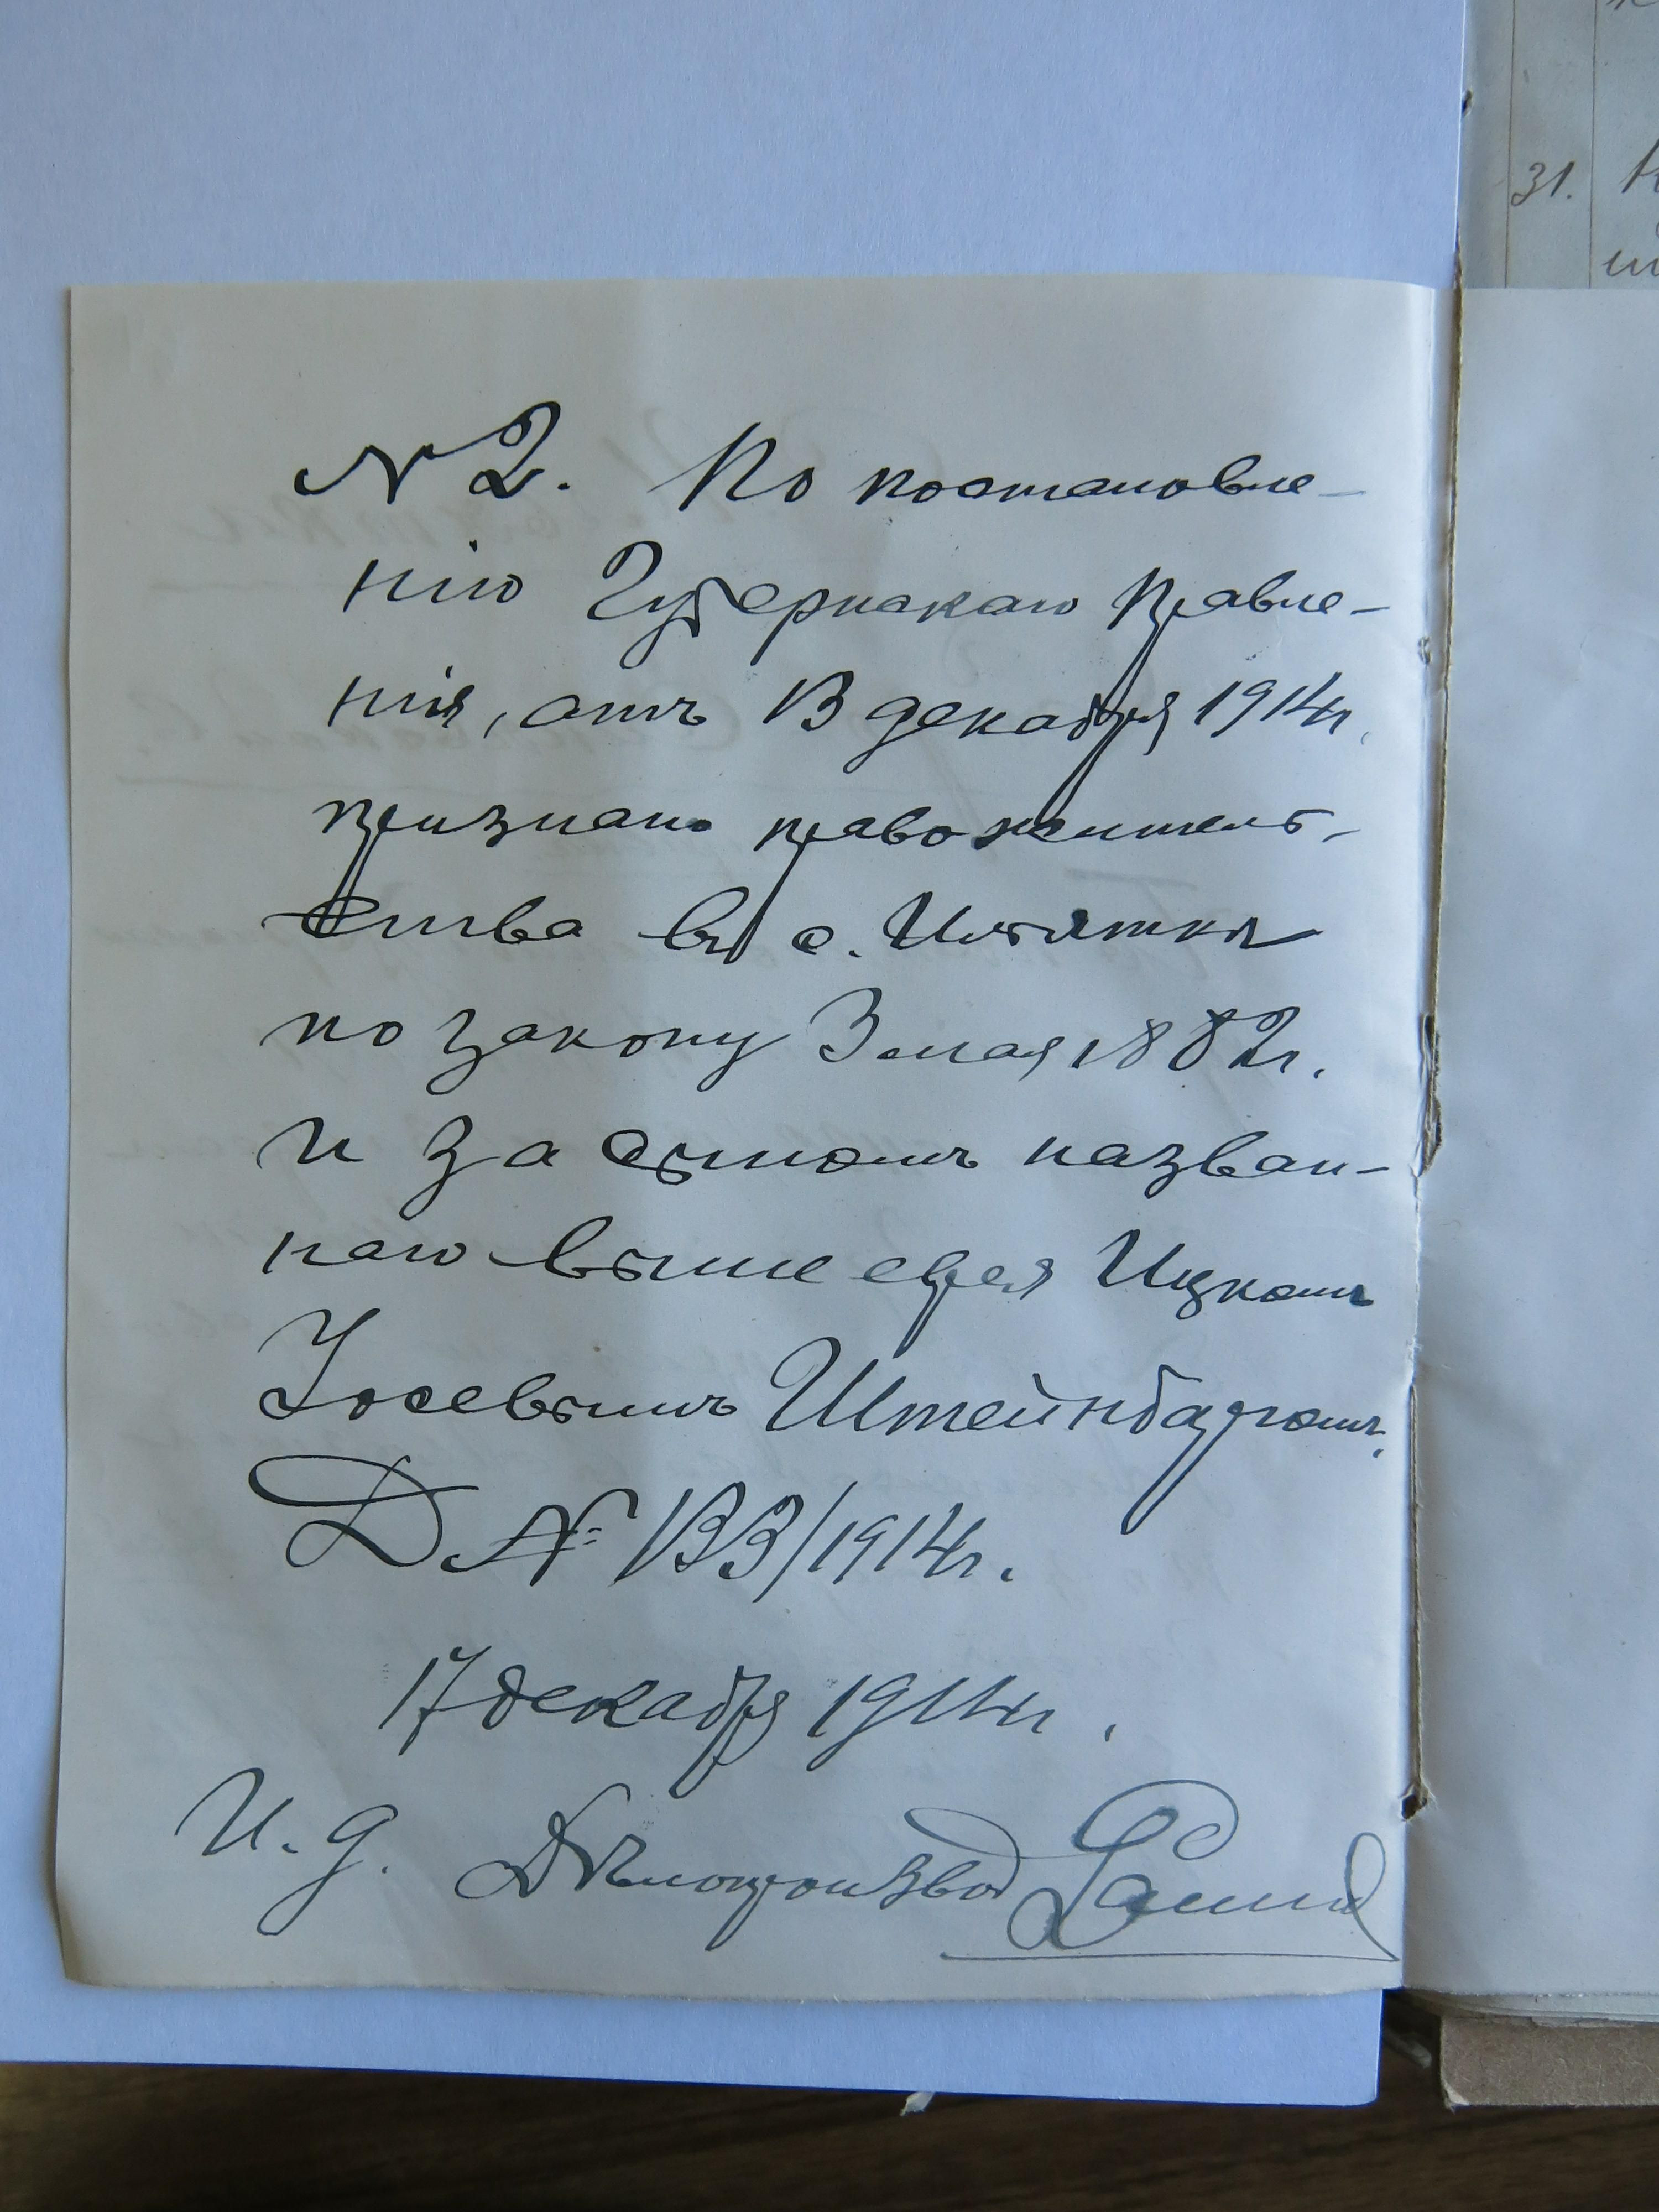 31.
N 2. По постановле-
нію Губернскаго Правле-
нія, отъ 13 декабря 1914г.
признано правожитель-
ства въ с.
по закону 3 мая 1882г.
и за сыномъ назван-
наго выше еврея Ицкомъ
Іосевымъ Штейнбаргомъ.
Д № 133/1914г.
17 декабря 1914г.
И. д. Дѣлопроизвод